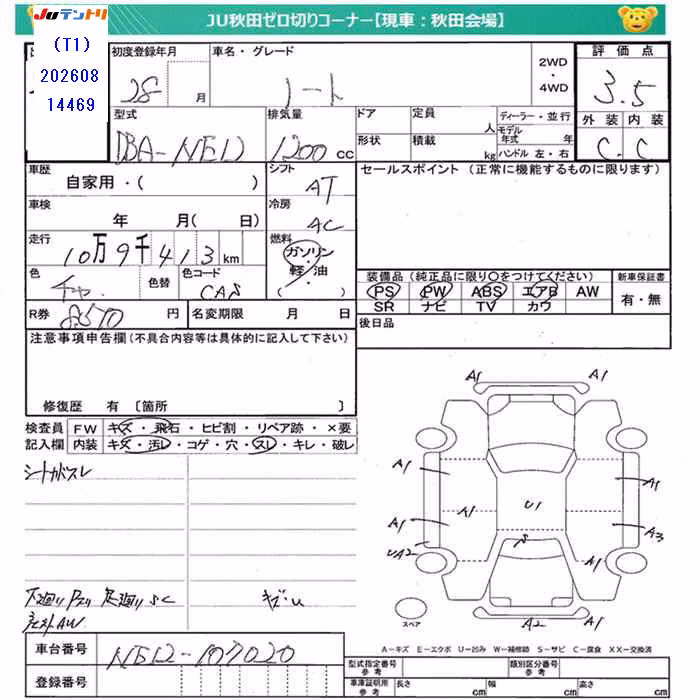 JUテントリ
JU秋田ゼロ切りコーナー【現車：秋田会場】
(T1)
202608
14469
初度登録年月
28 月
車名・グレード
ノート
2WD
・
4WD
評価点
3.5
外装 内装
C C
型式
DBA-NE12
排気量
1200 cc
ドア
定員
人
形状
積載
kg
ディーラー・並行
モデル年式 年
ハンドル 左・右
車歴
自家用・( )
シフト
AT
セールスポイント (正常に機能するものに限ります)
車検
年 月( 日)
冷房
AC
走行
10万9千413km
燃料
ガソリン
・
軽・油
( )
色
色替
色コード
CAS
装備品 (純正品に限り○をつけてください)
PS PW ABS エアB AW
SR ナビ TV カワ
新車保証書
有・無
R券
8570 円
名変期限 月 日
後日品
注意事項申告欄(不具合内容等は具体的に記入して下さい)
修復歴 有 〔箇所 〕
検査員
記入欄
FW キズ・飛石・ヒビ割・リペア跡・×要
内装 キズ・汚レ・コゲ・穴・スレ・キレ・破レ
シートカバスレ
下廻り 足廻りSC
キズ・U
AW
A1
A1
A1
A1
A1
A1
U1
A1
A3
UA2
S
A1
A2
A1
スペア
A-キズ E-エクボ U-凹み W-補修跡 S-サビ C-腐食 XX-交換済
車台番号
NE12-107020
登録番号
型式指定番号
参考
類別区分番号
参考
車庫証明用
参考
長さ cm
幅 cm
高さ cm